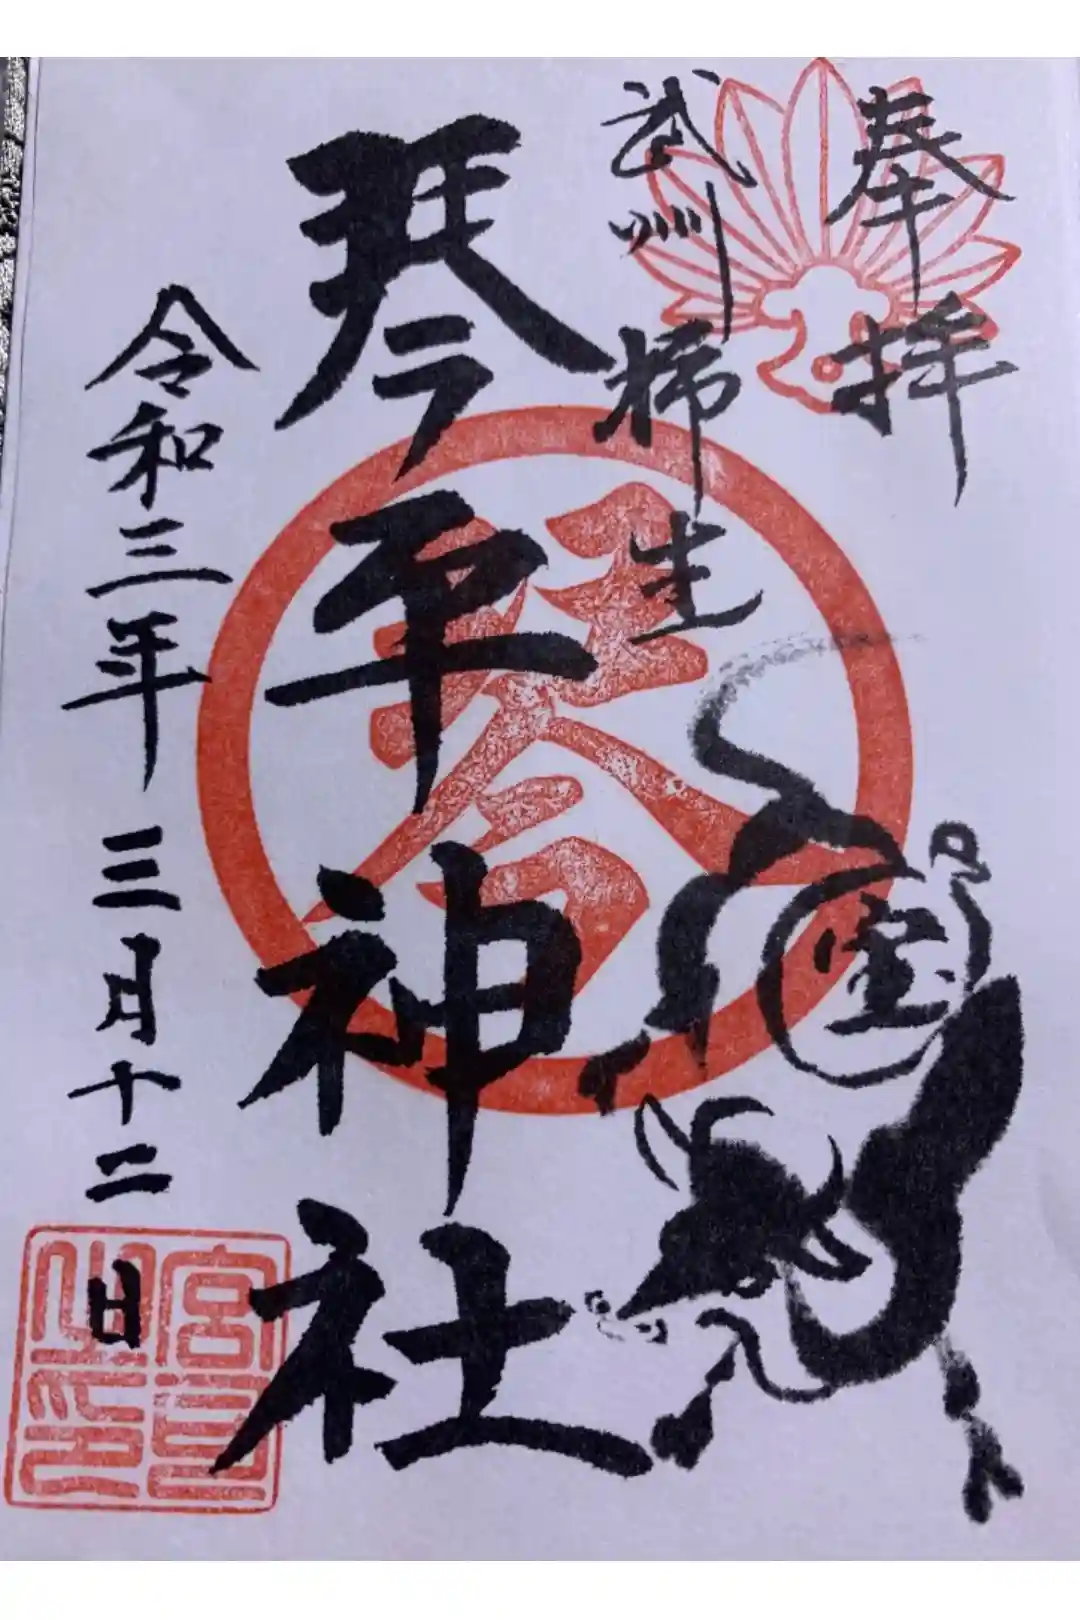 奉拝
武州柿生
琴平神社
令和三年三月十二日
宝
琴
宮司之印